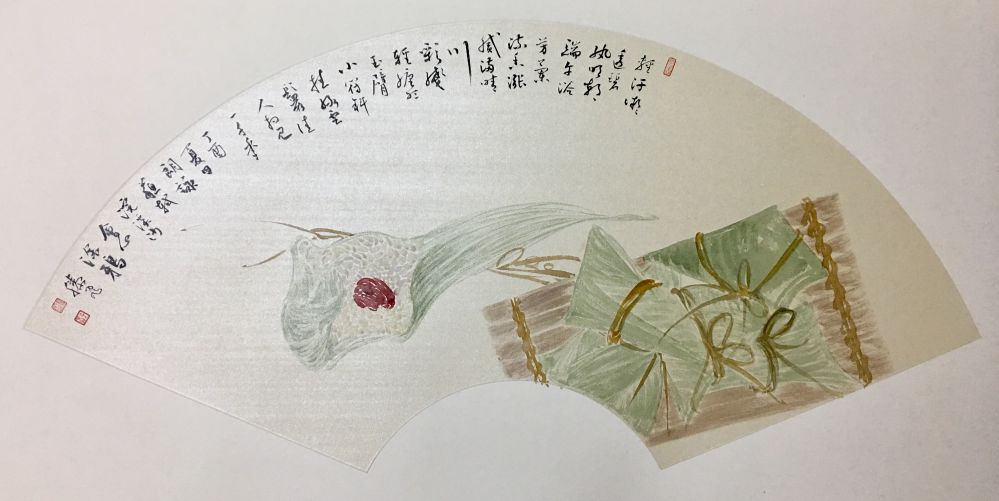 輕汗微微
透碧
紈明朝
端午浴
芳蘭
流香漲
膩滿晴
川
彩線
輕纏紅
玉臂
小符斜
掛綠雲
鬟佳
人相見
一千年
丁酉
夏日
朗詠
蘇軾
浣溪沙